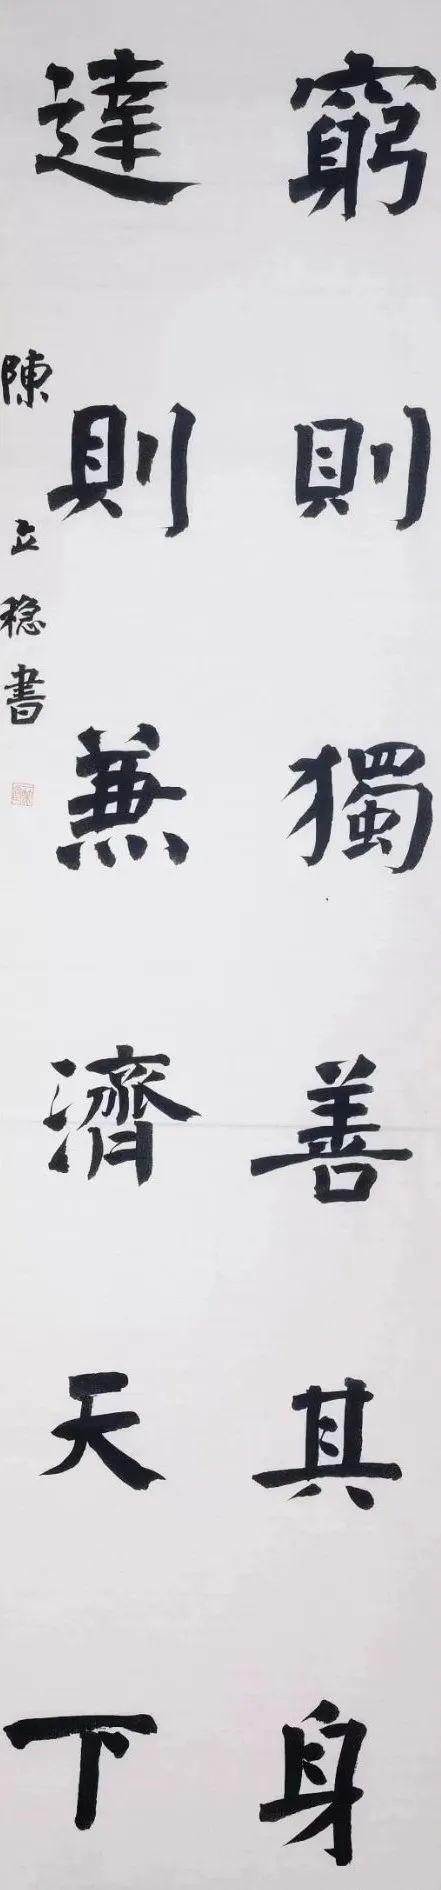 窮則獨善其身
達則兼濟天下
陳立稳書